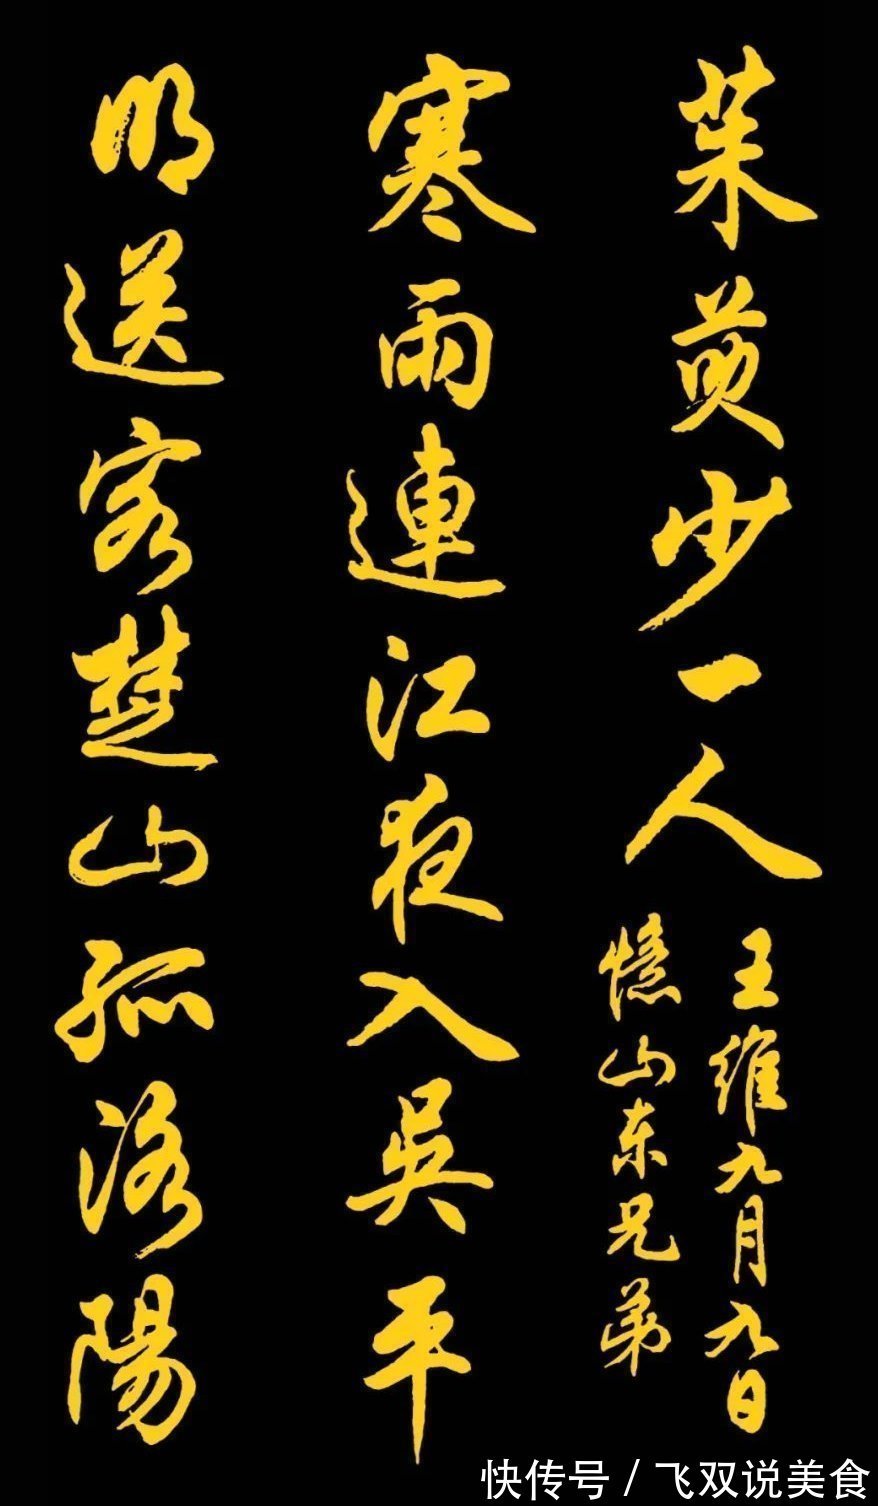 茱萸少一人
王維九月九日
憶山东兄弟
寒雨連江夜入吳平
明送客楚山孤洛陽
快传号 / 飞双说美食